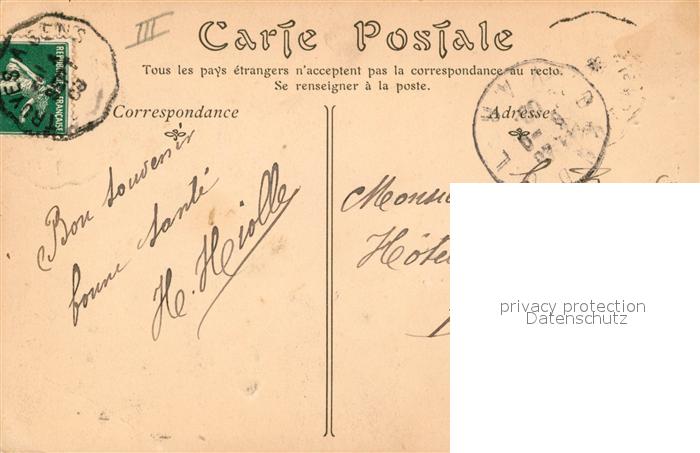 III
Carte Postale
Tous les pays étrangers n'acceptent pas la correspondance au recto.
Se renseigner à la poste.
Correspondance
Adresse
REPUBLIQUE FRANÇAISE
A SENS
Bon souvenir
bonne santé
H. Hiolle
Monsi
Hôtel
privacy protection
Datenschutz